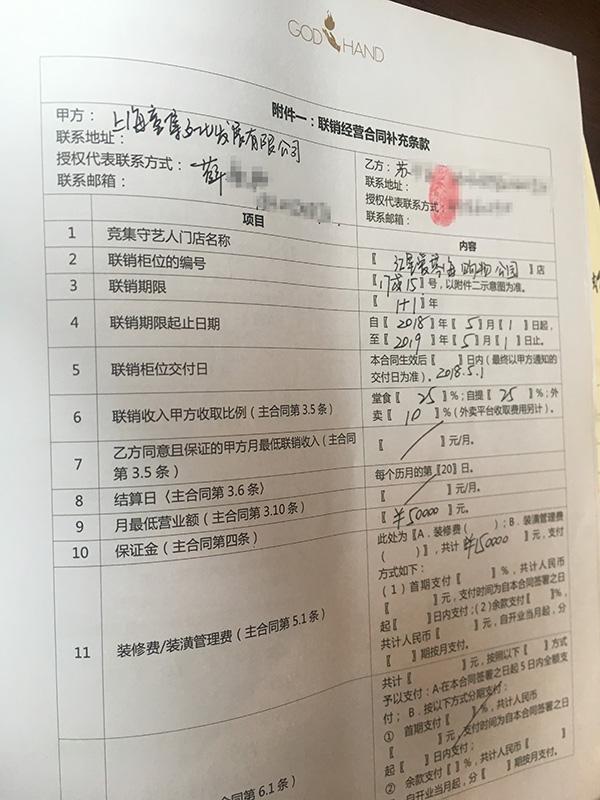 GOD HAND
附件一：联销经营合同补充条款
甲方：上海 集文化发展有限公司
联系地址：
授权代表联系方式：薛
联系邮箱：
乙方：苏
联系地址：
授权代表联系方式：
联系邮箱：
项目
内容
1 竞集守艺人门店名称
【 购物公园】店
2 联销柜位的编号
【 15】号，以附件二示意图为准。
3 联销期限
【1+1】年
4 联销期限起止日期
自【2018】年【5】月【1】日起，
至【2019】年【5】月【1】日止。
5 联销柜位交付日
本合同生效后【 】日内（最终以甲方通知的
交付日为准）。2018.5.1
6 联销收入甲方收取比例（主合同第3.5条）
堂食【25】%；自提【25】%；外
卖【10】%（外卖平台收取费用另计）。
7 乙方同意且保证的甲方月最低联销收入（主合同
第3.5条）
【 】元/月。
8 结算日〈主合同第3.6条〉
每个历月的第【20】日。
9 月最低营业额（主合同第3.10条）
【 】元/月。
10 保证金（主合同第四条）
【¥50000】元。
11 装修费/装潢管理费（主合同第5.1条）
此处为【A．装修费（ ）；B．装潢管理费
（ ）】，共计¥150000元，支付
方式如下：
（1）首期支付【 】%，共计人民币
【 】元，支付时间为自本合同签署之日
起【 】日内支付；（2）余款支付【 】%，
共计人民币【 】元，自开业当月起，分
【 】期按月支付。
共计【 】元，按照以下【 】方式
予以支付：A.在本合同签署之日起5日内全额支
付；B．按以下方式分期支付：
① 首期支付【 】%，共计人民币
【 】元，支付时间为自本合同签署之日
起【 】日内支付；
② 余款支付【 】%，共计人民币【 】
元，自开业当月起，分【 】期按月支付。
合同第6.1条）